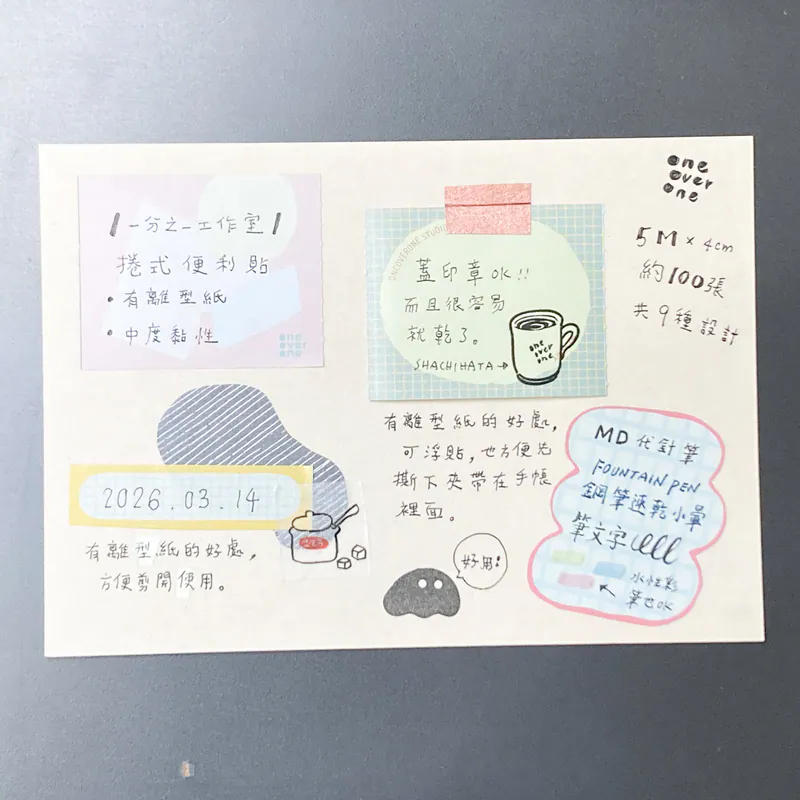 一分之一工作室
捲式便利貼
• 有離型紙
• 中度黏性
one
over
one
ONEOVERONE.STUDIO
蓋印章OK!!
而且很容易
就乾了。
SHACHIHATA→
one
over
one
one
over
one
5M × 4cm
約100張
共9種設計
2026.03.14
有離型紙的好處,
方便剪開使用。
有離型紙的好處,
可浮貼,也方便先
撕下夾帶在手帳
裡面。
好用!
MD代針筆
FOUNTAIN PEN
鋼筆速乾小暈
筆文字
水性彩
筆也OK